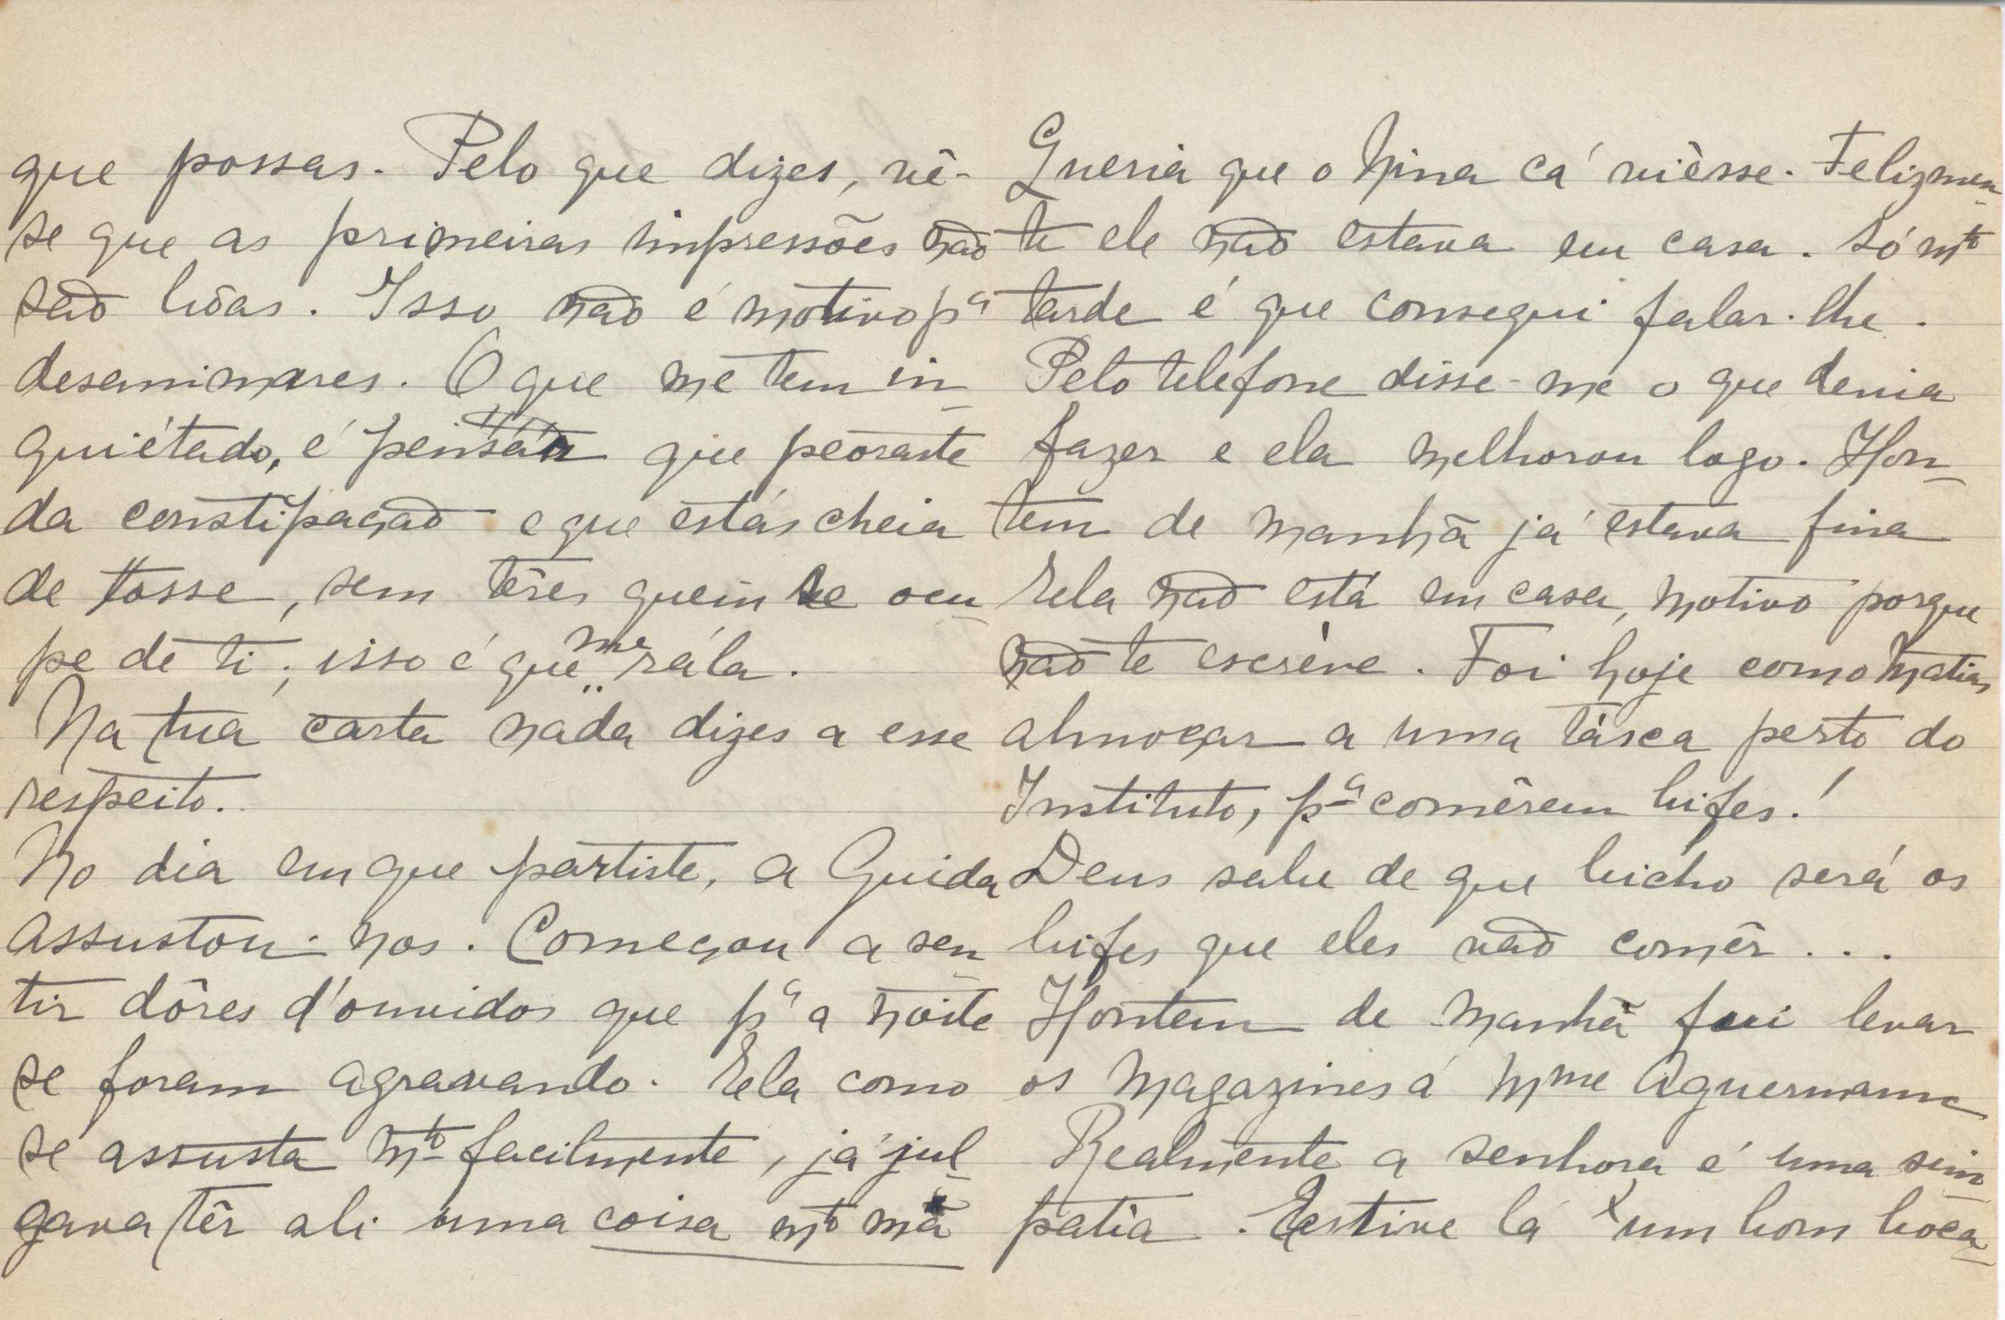 que possas. Pelo que dizes, vê-
se que as primeiras impressões não
são bôas. Isso não é motivo pª
desanimares. O que me tem in-
quiétado, é pensár que peoraste
da constipação e que estás cheia
de tosse, sem têres quem se ocu-
pe de ti, isso é que me rála.
Na tua carta nada dizes a esse
respeito.
No dia em que partiste, a Guida
assustou-nos. Começou a sen-
tir dôres d'ouvidos que pª a noite
se foram agravando. Ela como
se assusta mto facilmente, já jul-
gava têr ali uma coisa mto má
Queria que o Nina cá viésse. Felizmen-
te ele não estava em casa. Só mto
tarde é que consegui falar-lhe.
Pelo telefone disse-me o que devia
fazer e ela melhorou logo. Hon-
tem de manhã já estava fina
Ela não está em casa, motivo porque
não te escréve. Foi hoje com o Matias
almoçar a uma tásca perto do
Instituto, pª comêrem bifes!
Deus sabe de que bicho será os
bifes que eles vão comêr...
Hontem de manhã fui levar
os Magazines á Mme Aguermann
Realmente a senhora é uma sim-
patia. Estive lá um bom boca-